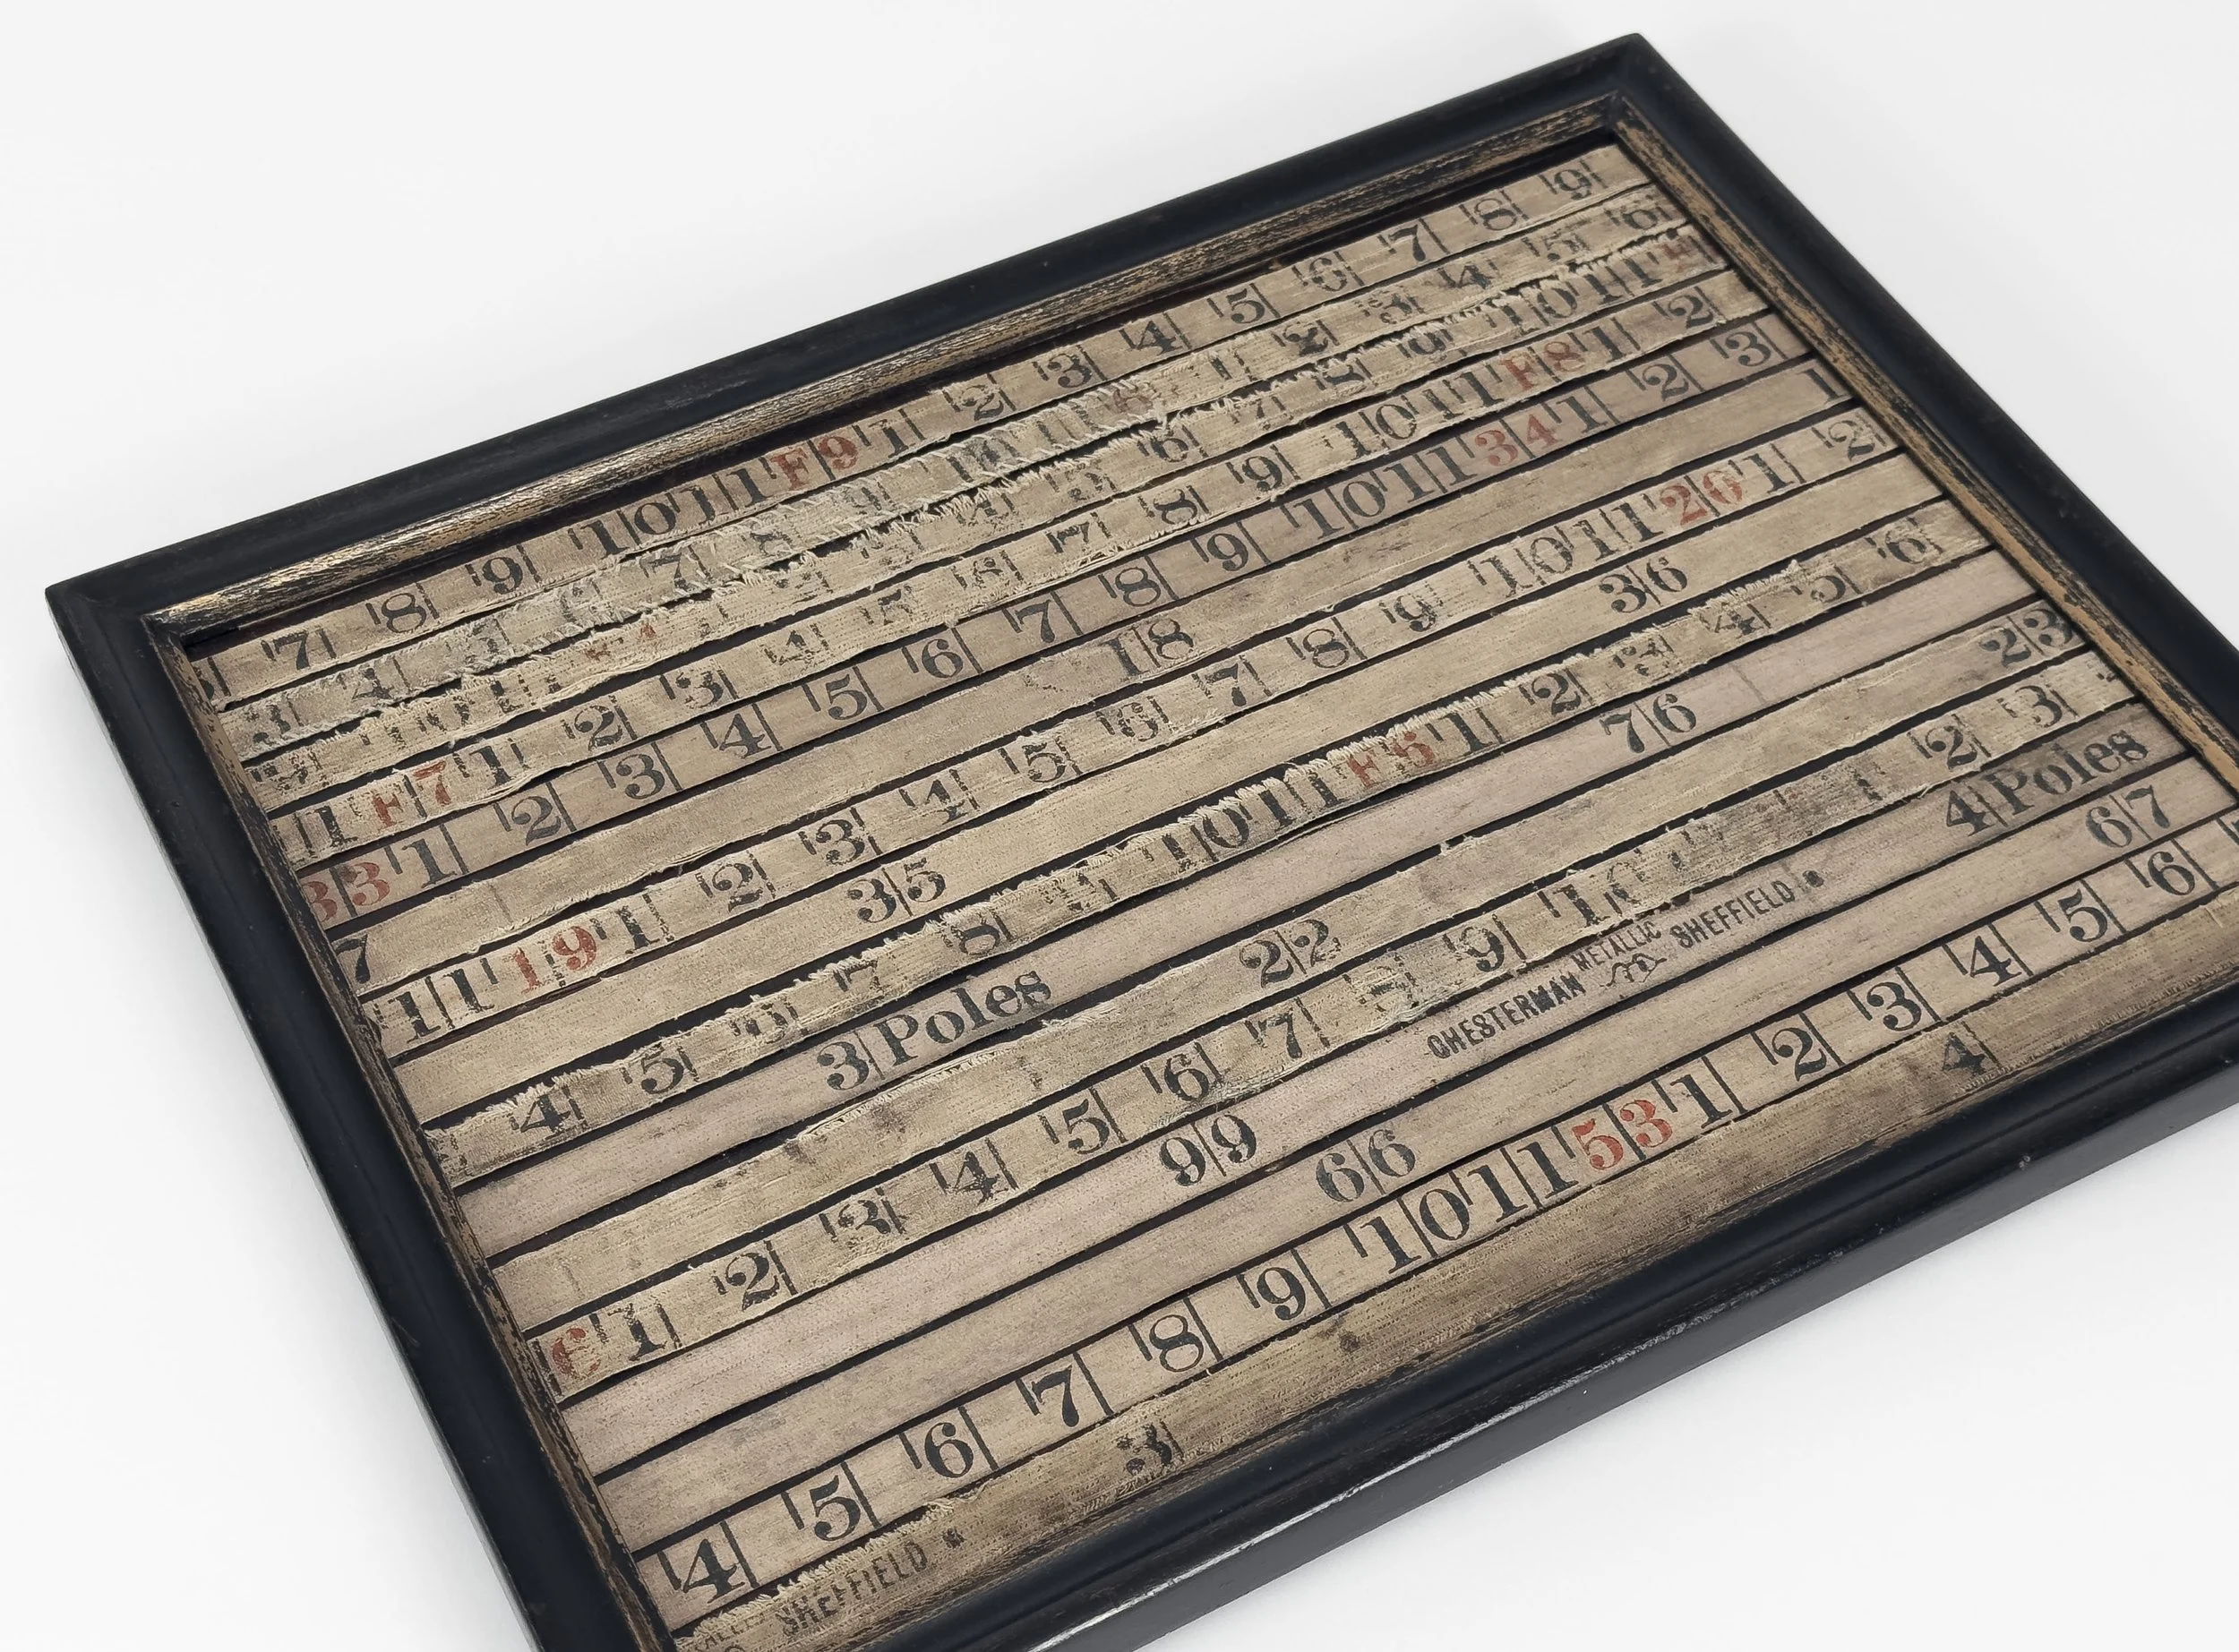 7 8 9 10 11 F 9 1 2 3 4 5 6 7 8 9
3 4 5 6 7 8 9 1 2 3 4 5 6
9 10 11 5 6 7 8 9 10 11 F
11 F 7 1 2 3 4 5 6 7 8 9 10 11 F 8 1 2
33 1 2 3 4 5 6 7 8 9 10 11 34 1 2 3
7 18 1
11 19 1 2 3 4 5 6 7 8 9 10 11 20 1 2
35 36
4 5 6 7 8 9 10 11 F 5 1 2 3 4 5 6
3 Poles 76
22 23
1 2 3 4 5 6 7 8 9 10 1 2 3
99 CHESTERMAN METALLIC SHEFFIELD 4 Poles
66 67
4 5 6 7 8 9 10 11 53 1 2 3 4 5 6
SHEFFIELD 3 4